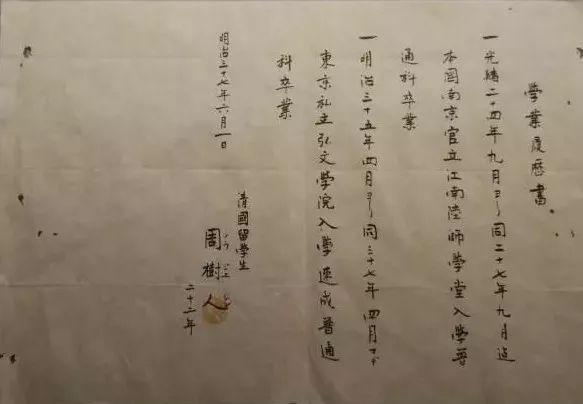 學業履歴書
一光緒二十四年九月ヨリ同二十七年九月迠
本国南京官立江南陸師學堂入學普
通科卒業
一明治三十五年四月ヨリ同三十七年四月マデ
東京私立弘文學院入學速成普通
科卒業
明治三十七年六月一日
清國留學生
周樹人
二十二年